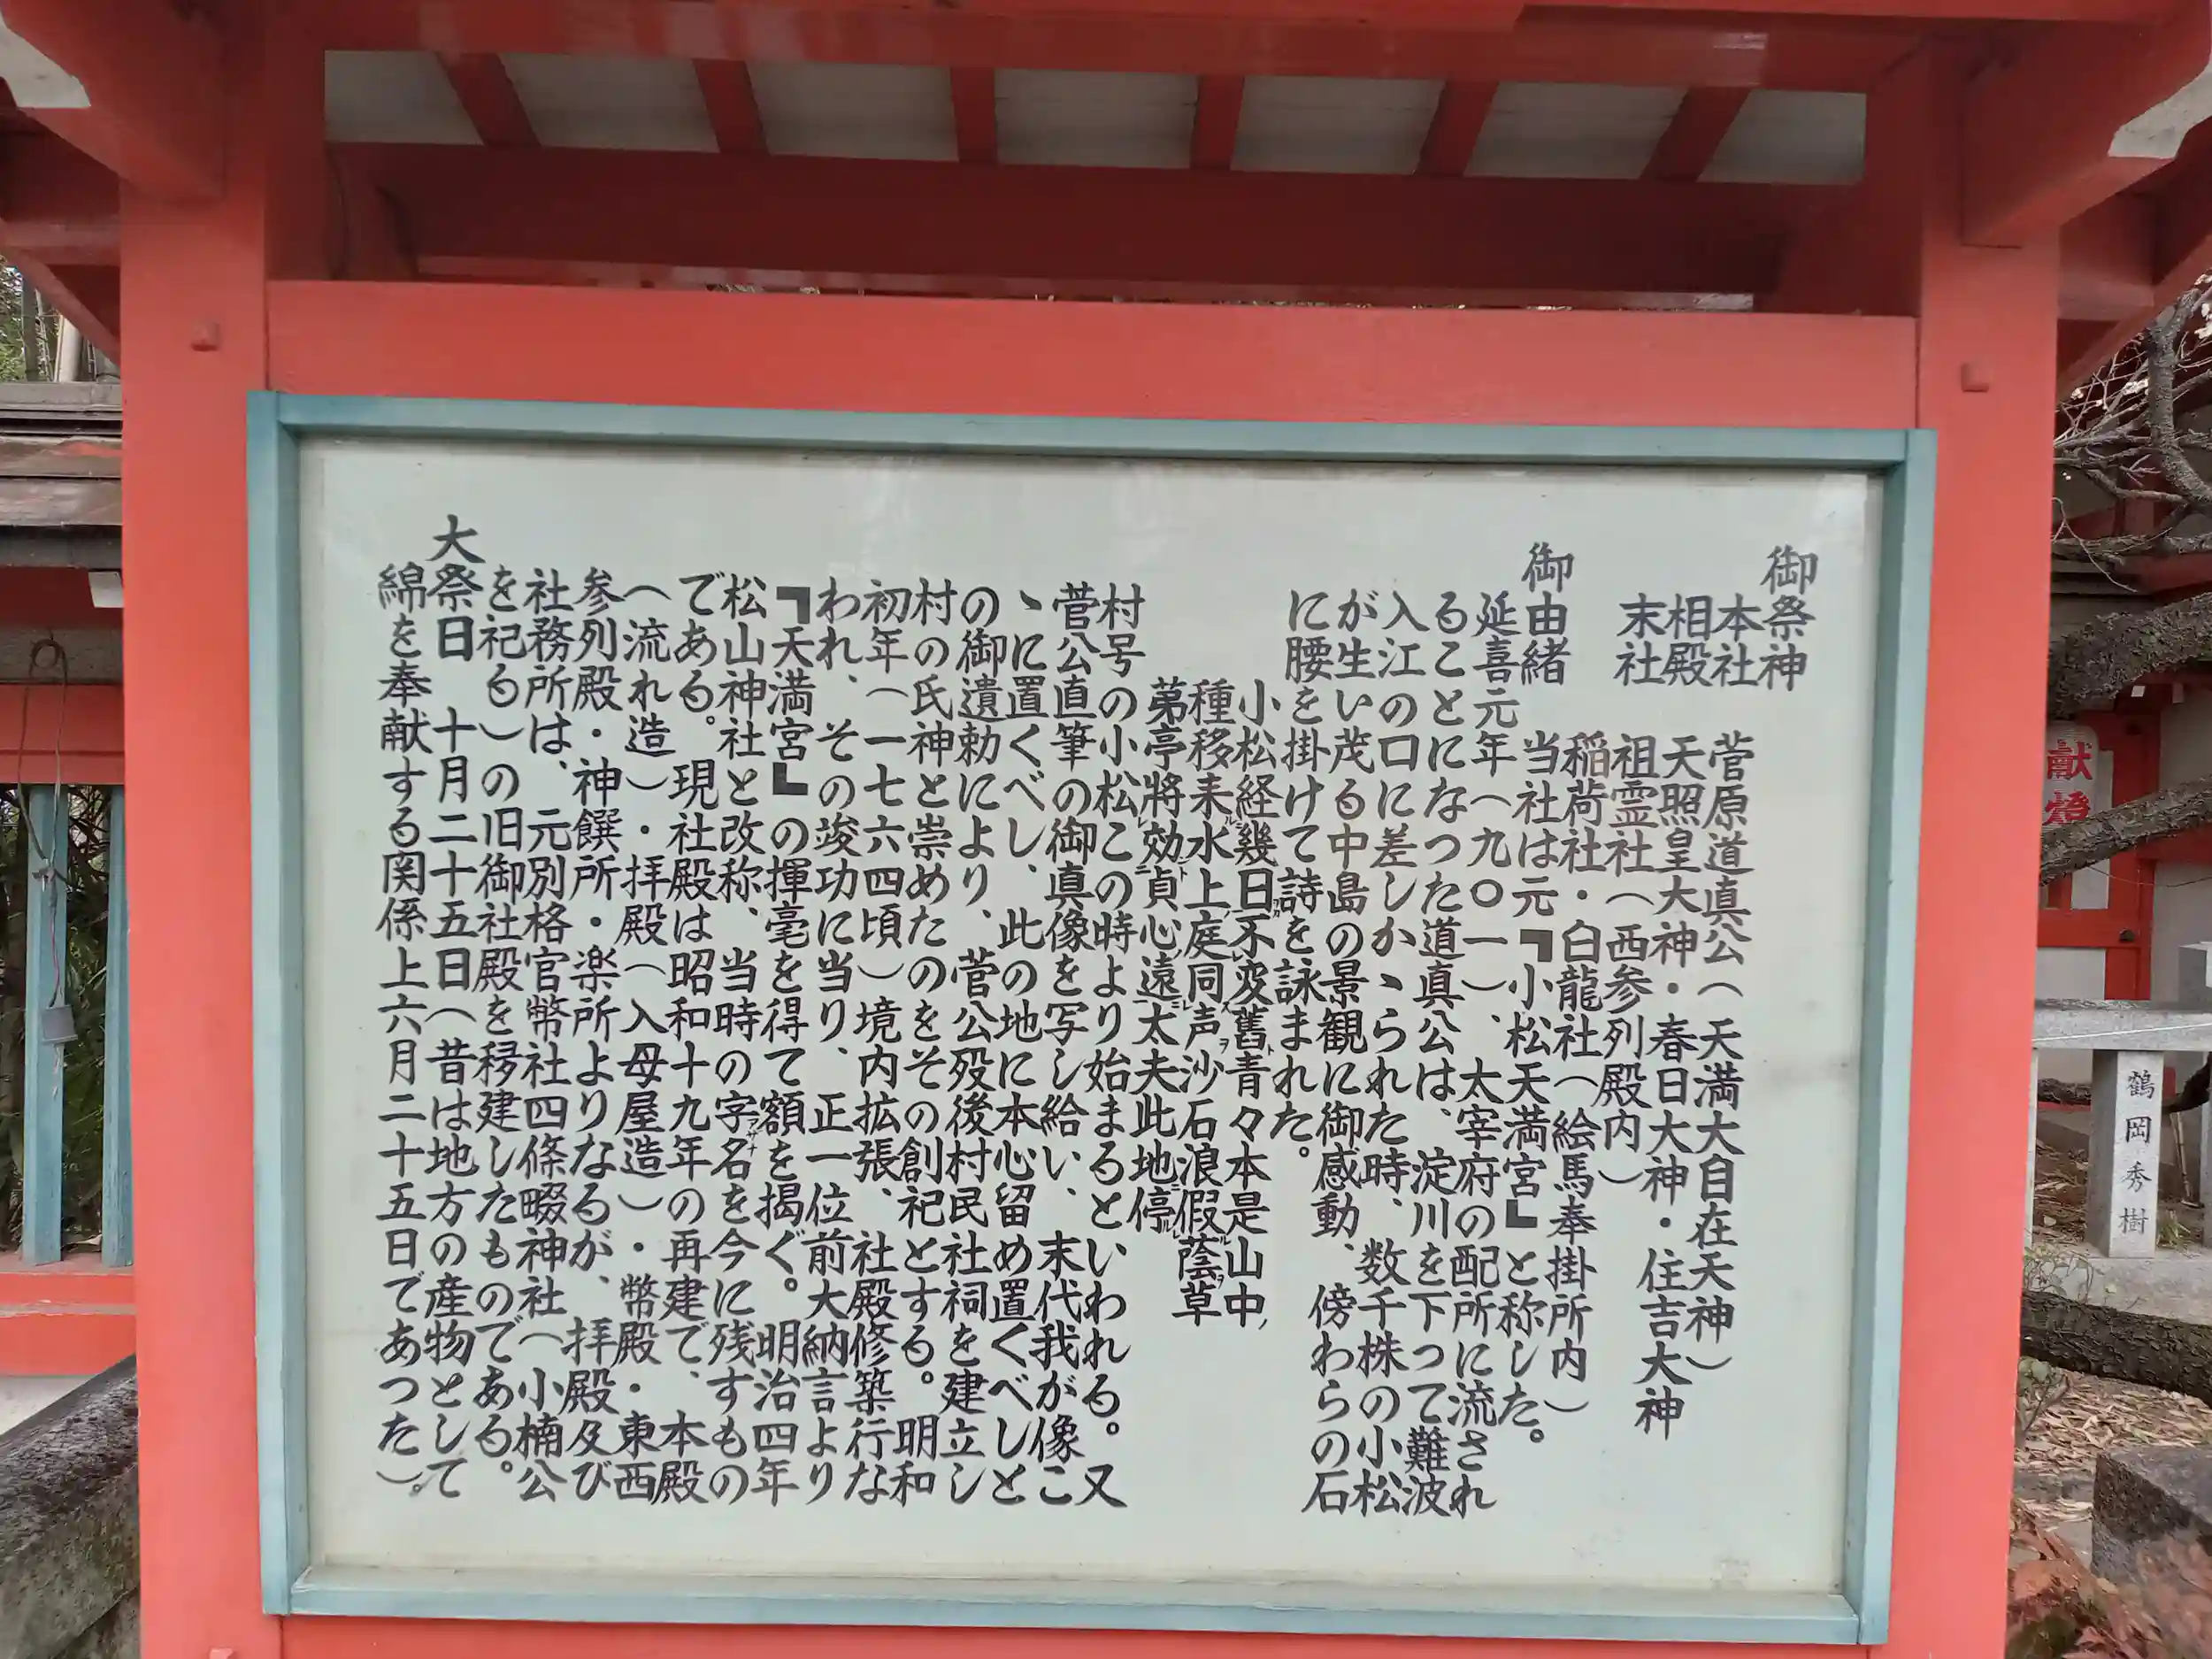 御祭神
本社 菅原道真公（天満大自在天神）
相殿 天照皇大神・春日大神・住吉大神
末社 祖霊社（西参列殿内）
稲荷社・白龍社（絵馬奉掛所内）
御由緒 当社は元『小松天満宮』と称した。
延喜元年（九〇一）、太宰府の配所に流され
ることになった道真公は、淀川を下って難波
入江の口に差しかゝられた時、数千株の小松
が生い茂る中島の景観に御感動、傍わらの石
に腰を掛けて詩を詠まれた。
小松経幾日不変舊青々本是山中
種移来水上庭同声沙石浪假蔭草
苐亭將効貞心遠太夫此地停
村号の小松この時より始まるといわれる。又
菅公直筆の御真像を写し給い、末代我が像こ
ゝに置くべし、此の地に本心留め置くべしと
の御遺勅により、菅公歿後村民社祠を建立し
村の氏神と崇めたのをその創祀とする。明和
初年（一七六四頃）境内拡張、社殿修築行な
われ、その竣功に当り、正一位前大納言より
『天満宮』の揮毫を得て額を揚ぐ。明治四年
松山神社と改称、当時の字名を今に残すもの
である。現社殿は昭和十九年の再建で、本殿
（流れ造）・拝殿（入母屋造）・幣殿・東西
参列殿・神饌所・楽所よりなるが、拝殿及び
社務所は、元別格官幣社四條畷神社（小楠公
を祀る）の旧御社殿を移建したものである。
大祭日 十月二十五日（昔は地方の産物として
綿を奉献する関係上六月二十五日であった）。
献燈
鶴岡秀樹